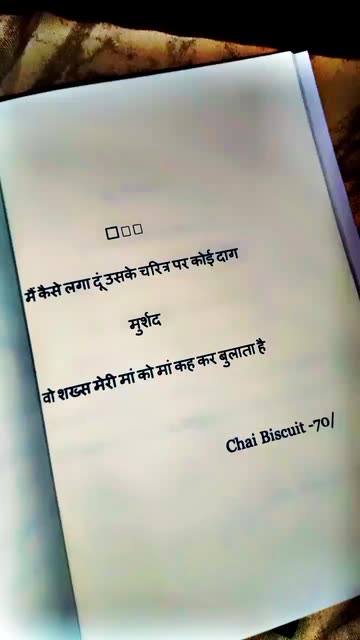 □□□
मैं कैसे लगा दूं उसके चरित्र पर कोई दाग
मुर्शद
वो शख्स मेरी मां को मां कह कर बुलाता है
Chai Biscuit -70/